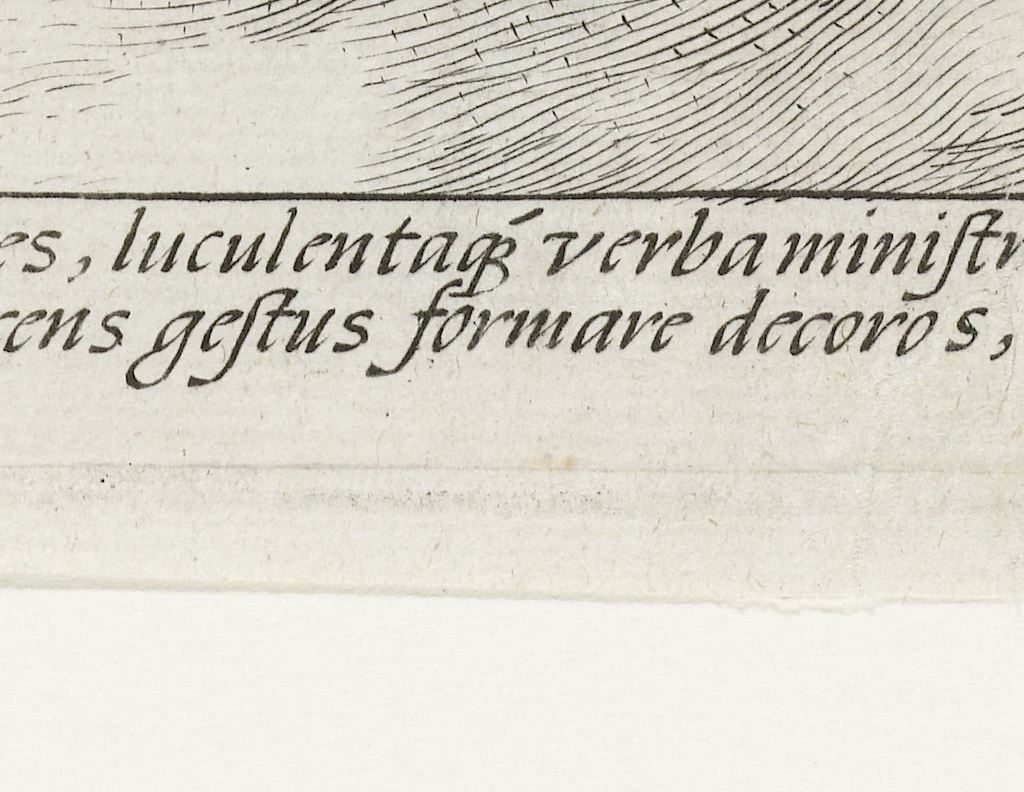 es, luculentaq́₃ verba miniſtr
cens geſtus formare decoros,